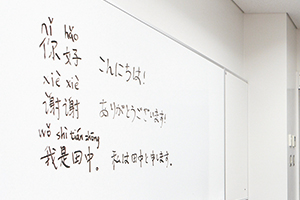 nǐ hǎo
你好 こんにちは!
xiè xiè
谢谢 ありがとうございます!
wǒ shì tián zhōng
我是田中。 私は田中と申します。